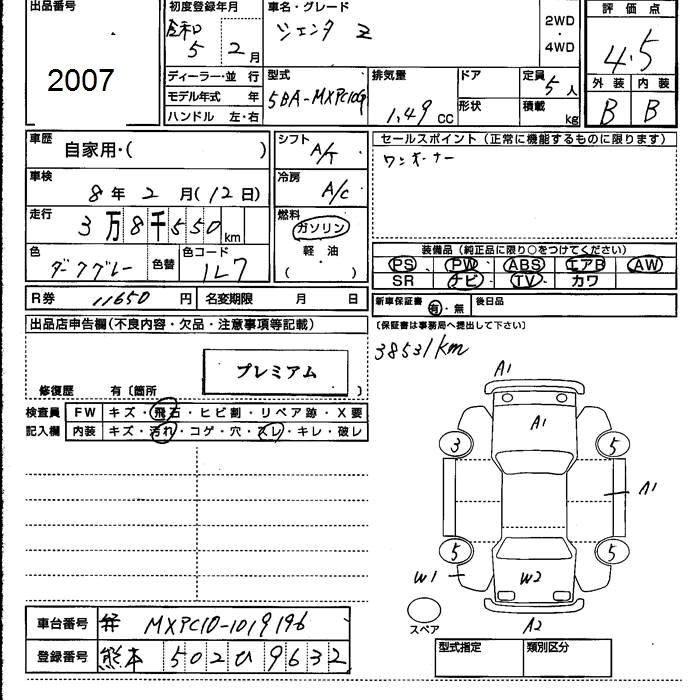 出品番号 初度登録年月 車名・グレード 2WD・4WD 評価点
2007 令和5年2月 シエンタ Z 4.5
ディーラー・並行 型式 排気量 ドア 定員 5人 外装 内装
モデル年式 年 5BA-MXPC10G 1.49cc 形状 積載 kg B B
ハンドル 左・右
車歴 自家用・( ) シフト A/T セールスポイント(正常に機能するものに限ります)
車検 8年2月(12日) 冷房 A/C ワンオーナー
走行 3万8千550km 燃料 ガソリン
軽・油
( )
色 ダークグレー 色替 色コード 1L7 装備品(純正品に限り○をつけてください)
PS PW ABS エアB AW
SR ナビ TV カワ
R券 11650円 名変期限 月 日 新車保証書 有・無 後日品
出品店申告欄(不良内容・欠品・注意事項等記載) (保証書は事務局へ提出して下さい)
38531km
プレミアム
修復歴 有〔箇所 〕
検査員 FW キズ・飛石・ヒビ割・リペア跡・X要
記入欄 内装 キズ・汚れ・コゲ・穴・スレ・キレ・破レ
A1
A1
3 5
A1
5 5
W1 W2
スペア A2
車台番号 MXPC10-1019196 型式指定 類別区分
登録番号 熊本 502 ひ 9632